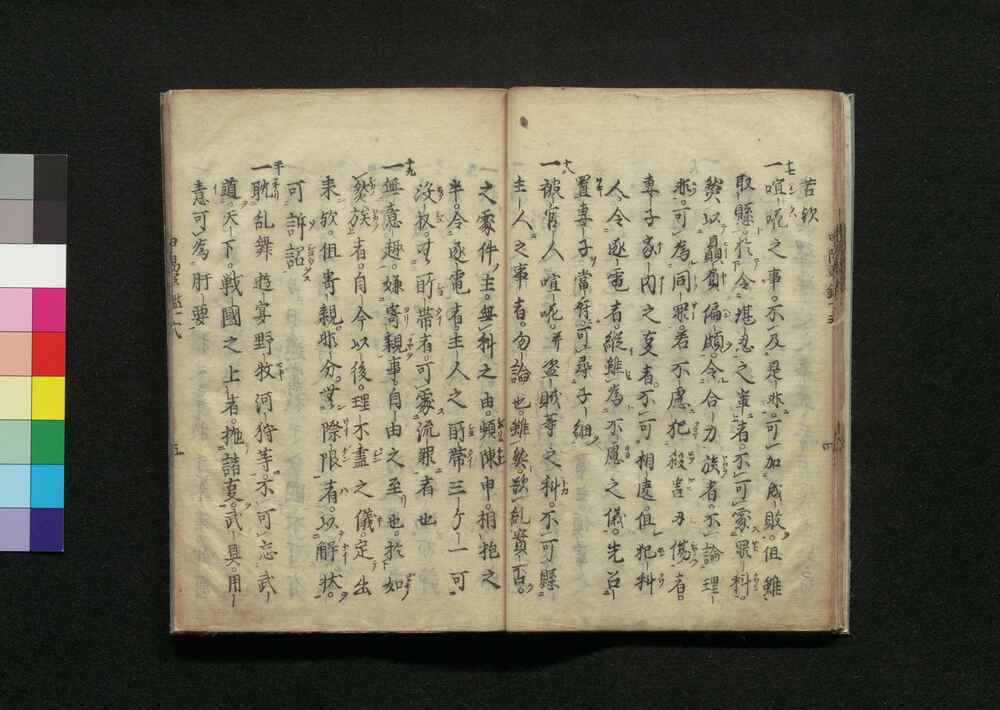 若欤
十七 一喧呢之事不及是非可加成敗但雖
取懸於令堪忍之輩者不可處罪科
然以贔負偏頗令合力族者不論理
非可為同罪若不慮犯殺害刃傷者
妻子家内之者不可相違但犯科
人令逐電者縦雖為不慮之儀先召
置妻子當府可尋子細
十八 一被官人喧呢并盗賊等之科不可懸
主人之事者勿論也雖然欲糺實否
之處件主無科之由頻陳申相抱之
半令逐電者主人之所帯三ケ一可
没収無所帯者可處流罪者也
十九 一無意趣嫌寄親事自由之至也於如
然族者自今以後理不盡之儀定出
来欤但寄親非分無際限者以解状
可訴詔
二十 一耽乱舞遊宴野牧河狩等不可忘武
道天下戦國之上者抛諸事武具用
意可為肝要
五